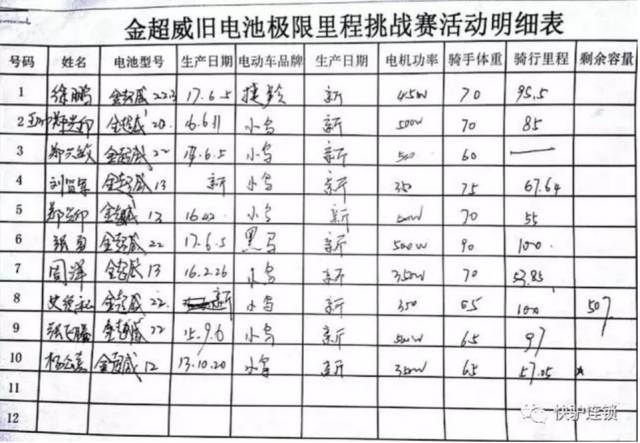 金超威旧电池极限里程挑战赛活动明细表
号码 姓名 电池型号 生产日期 电动车品牌 生产日期 电机功率 骑手体重 骑行里程 剩余容量
1 徐鹏 金超威 223 17.6.5 捷 新 450W 70 95.5
2 金超威 20 16.6.11 小鸟 新 500W 70 85
3 金超威 22 6.5 小鸟 新 500 60 —
4 金超威 13 新 小鸟 新 350 75 67.64
5 金超威 13 小鸟 新 500W 70 55
6 张勇 金超威 22 17.6.5 黑马 新 500W 90 100
7 周洋 金超威 13 16.2.26 小鸟 新 350W 70
8 金超威 22 新 小鸟 新 350 100
9 张飞腾 金超威 22 15.9.6 小鸟 新 500W 65 97
10 金超威 12 13.10.20 小鸟 新 350W 65 57.05
11
12
快驴连锁